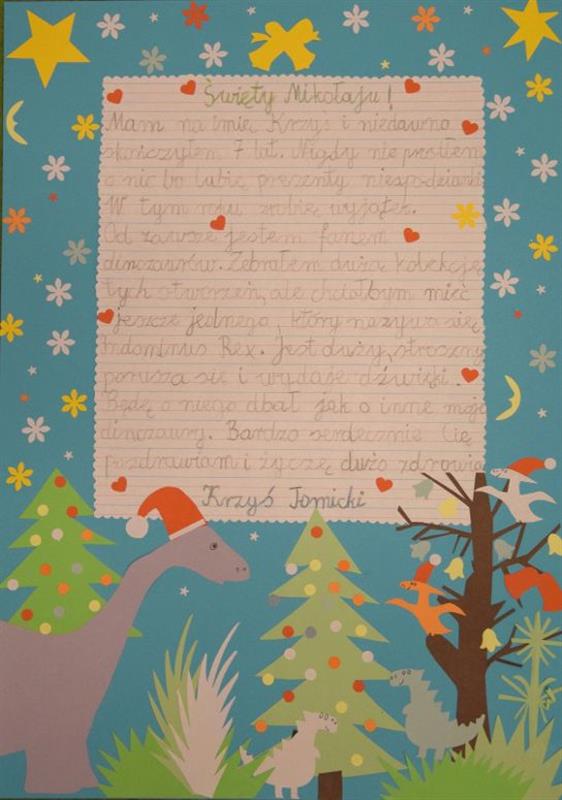 Święty Mikołaju!
Mam na imię Krzyś i niedawno
skończyłem 7 lat. Nigdy nie prosiłem
o nic bo lubię prezenty niespodzianki
W tym roku zrobię wyjątek.
Od zawsze jestem fanem
dinozaurów. Zebrałem dużą kolekcję
tych stworzeń, ale chciałbym mieć
jeszcze jednego, który nazywa się
Indominus Rex. Jest duży, straszny,
porusza się i wydaje dźwięki.
Będę o niego dbał jak o inne moje
dinozaury. Bardzo serdecznie Cię
pozdrawiam i życzę dużo zdrowia
Krzyś Tomicki